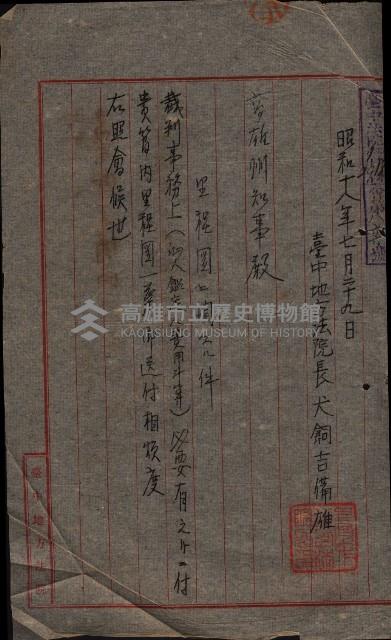 昭和十八年七月二十九日
臺中地方法院長 犬飼吉備雄
高雄州知事殿
里程圖ニ關スル件
裁判事務上(證人鑑定費用計算)必要有之候ニ付
貴管内里程圖一葉御送付相煩度
右照會候也
高雄市立歷史博物館
KAOHSIUNG MUSEUM OF HISTORY
臺中地方法院